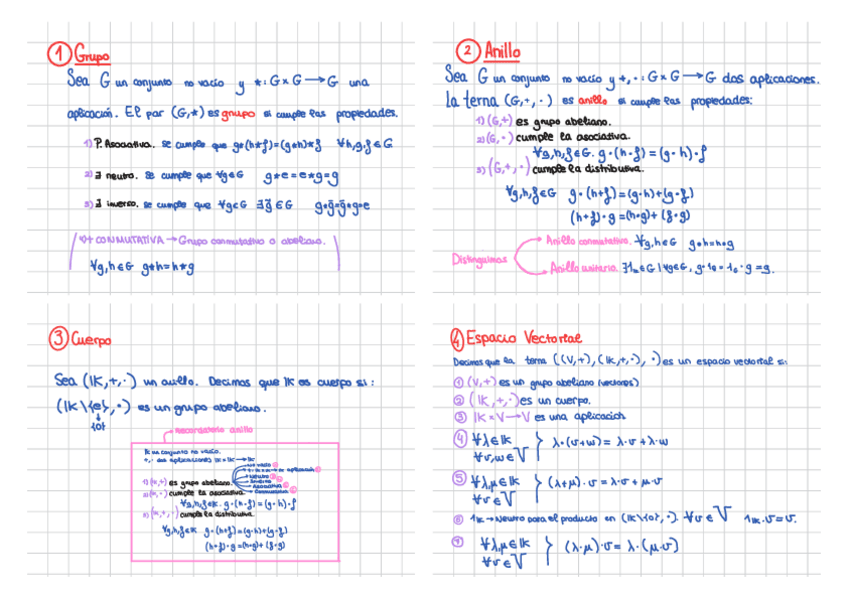 ① Grupo
Sea G un conjunto no vacío y *: G×G→G una
aplicación. El par (G,*) es grupo si cumple las propiedades.
1) P. Asociativa. se cumple que g*(h*f)=(g*h)*f ∀h,g,f∈G
2) ∃ neutro. se cumple que ∀g∈G g*e=e*g=g
3) ∃ inverso. se cumple que ∀g∈G ∃g̃∈G g*g̃=g̃*g=e
CONMUTATIVA → Grupo conmutativo o abeliano.
∀g,h∈G g*h=h*g
② Anillo
Sea G un conjunto no vacío y +,·: G×G→G dos aplicaciones.
La terna (G,+,·) es anillo si cumple las propiedades:
1) (G,+) es grupo abeliano.
2) (G,·) cumple la asociativa.
∀g,h,f∈G. g·(h·f)=(g·h)·f
3) (G,+,·) cumple la distributiva.
∀g,h,f∈G g·(h+f)=(g·h)+(g·f)
(h+f)·g=(h·g)+(f·g)
Distinguimos
Anillo conmutativo. ∀g,h∈G g*h=h*g
Anillo unitario. ∃1ₐ∈G | ∀g∈G, g·1ₐ=1ₐ·g=g.
③ Cuerpo
Sea (K,+,·) un anillo. Decimos que K es cuerpo si:
(K\{e},·) es un grupo abeliano.
{0}
Recordatorio anillo
K un conjunto no vacío.
+,· dos aplicaciones K×K→K
1) (K,+) es grupo abeliano.
No vacío
Neutro
Inverso
Asociativa
Conmutativa
2) (K,·) cumple la asociativa.
∀g,h,f∈K. g·(h·f)=(g·h)·f
3) (K,+,·) cumple la distributiva.
∀g,h,f∈K g·(h+f)=(g·h)+(g·f)
(h+f)·g=(h·g)+(f·g)
④ Espacio Vectorial
Decimos que la terna ((V,+),(K,+,·),·) es un espacio vectorial si:
① (V,+) es un grupo abeliano (vectores)
② (K,+,·) es un cuerpo.
③ K×V→V es una aplicación
④ ∀λ∈K
∀v,w∈V } λ·(v+w)=λ·v+λ·w
⑤ ∀λ,μ∈K
∀v∈V } (λ+μ)·v=λ·v+μ·v
⑥ 1K→Neutro para el producto en (K\{0},·). ∀v∈V 1K·v=v.
⑦ ∀λ,μ∈K
∀v∈V } (λ·μ)·v=λ·(μ·v)